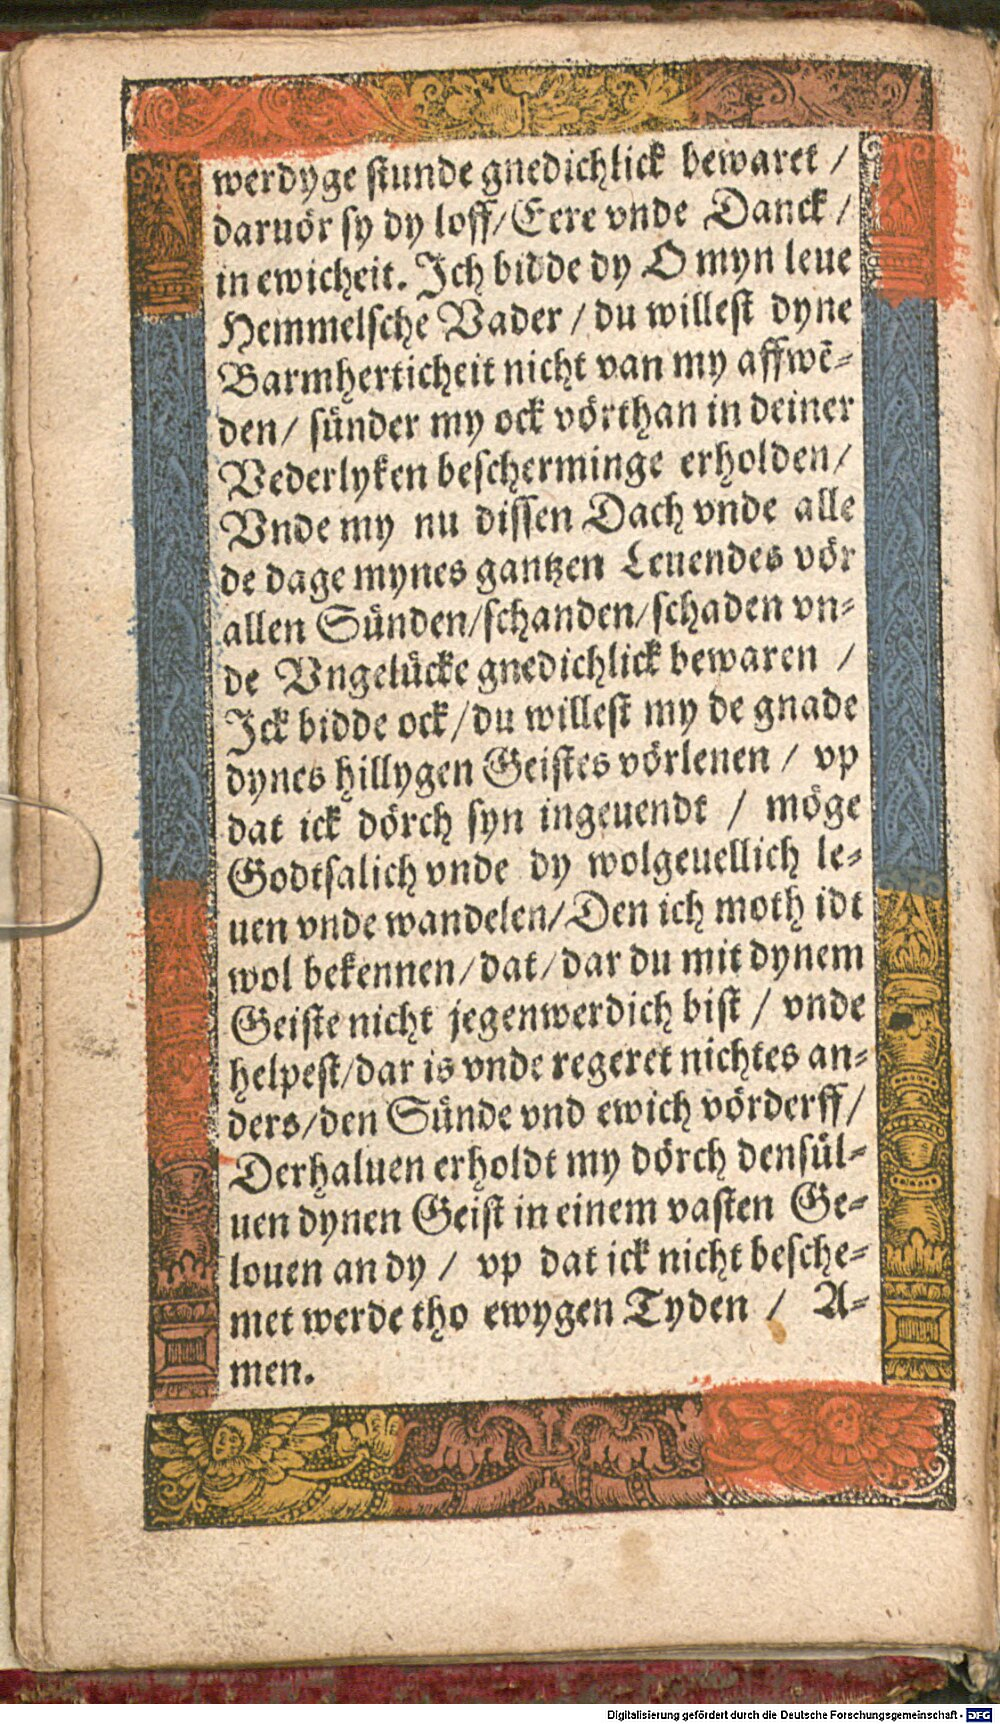 werdyge stunde gnedichlick bewaret /
daruör sy dy loff/Eere vnde Danck /
in ewicheit. Ich bidde dy O myn leue
Hemmelsche Vader / du willest dyne
Barmherticheit nicht van my affwē-
den/ sünder my ock vörthan in deiner
Vederlyken bescherminge erholden/
Vnde my nu dissen Dach vnde alle
de dage mynes gantzen Leuendes vör
allen Sünden/schanden/schaden vn-
de Vngelücke gnedichlick bewaren /
Ick bidde ock/du willest my de gnade
dynes hillygen Geistes vörlenen / vp
dat ick dörch syn ingeuendt / möge
Godtsalich vnde dy wolgeuellich le-
uen vnde wandelen/Den ich moth idt
wol bekennen/dat/dar du mit dynem
Geiste nicht jegenwerdich bist / vnde
helpest/dar is vnde regeret nichtes an-
ders/den Sünde vnd ewich vörderff/
Derhaluen erholdt my dörch densül-
uen dynen Geist in einem vasten Ge-
louen an dy / vp dat ick nicht besche-
met werde tho ewygen Tyden / A-
men.
Digitalisierung gefördert durch die Deutsche Forschungsgemeinschaft - DFG